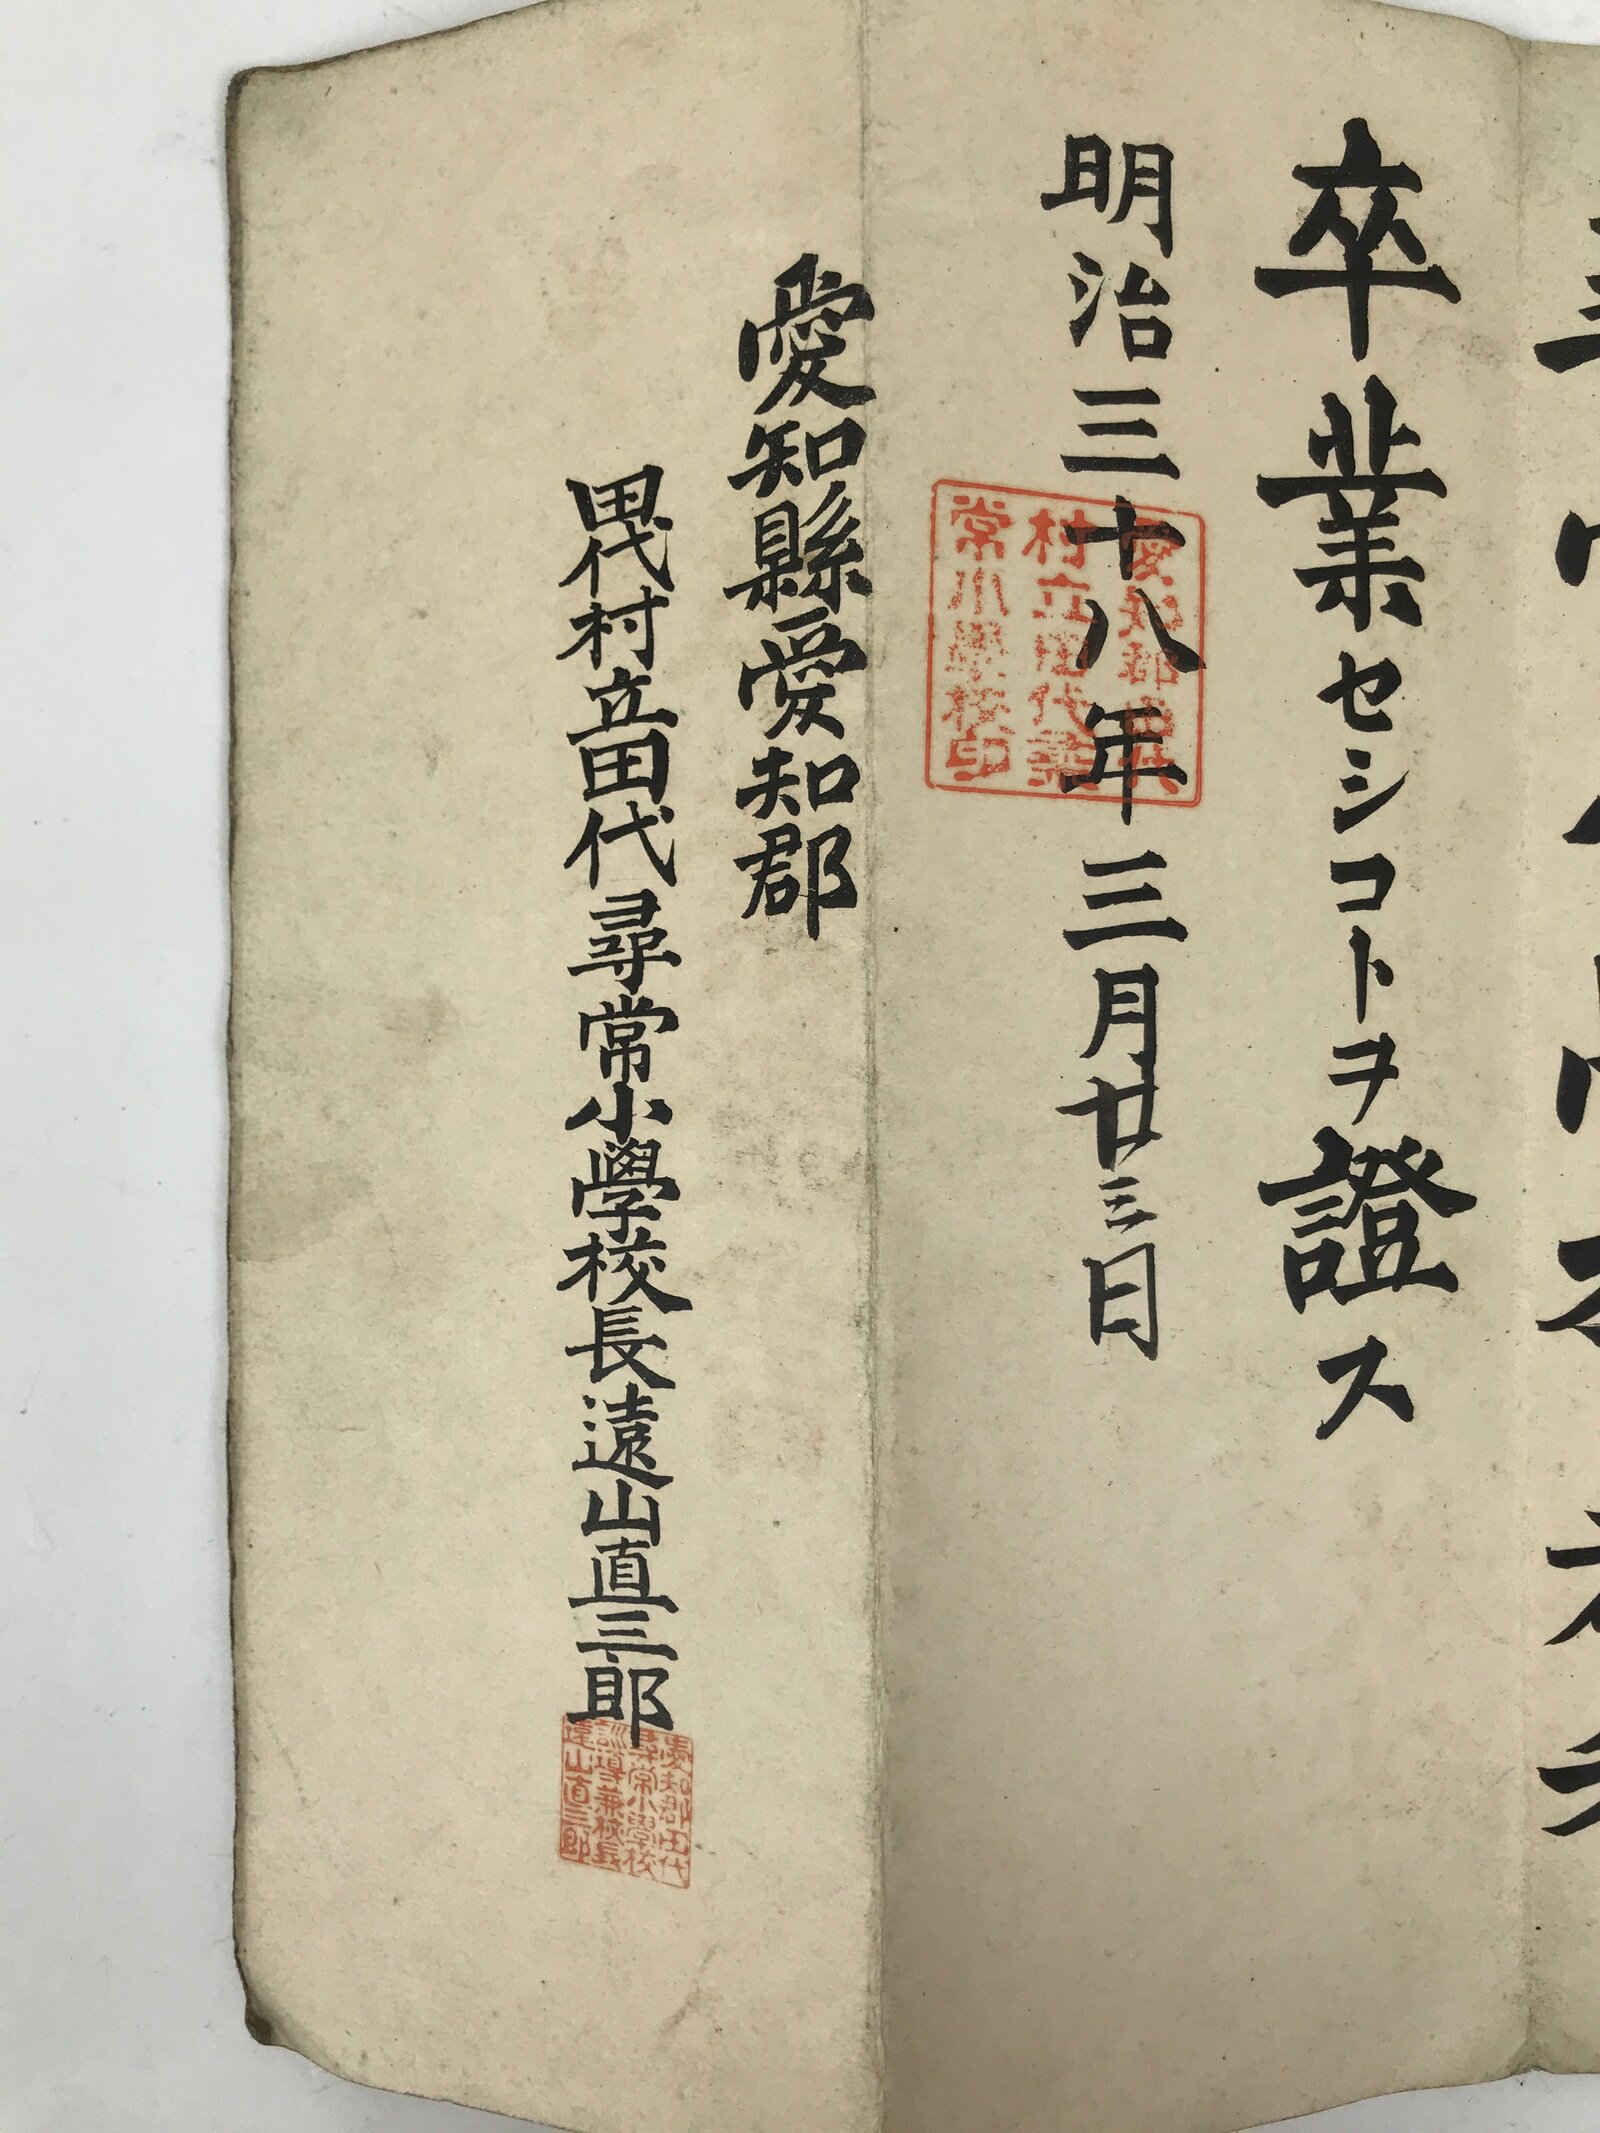 卒業セシコトヲ證ス
明治三十八年三月廿三日
愛知縣愛知郡
田代村立田代尋常小學校長遠山直三郎
愛知郡田代
尋常小學校
訓導兼校長
遠山直三郎
村立田代尋
常小學校